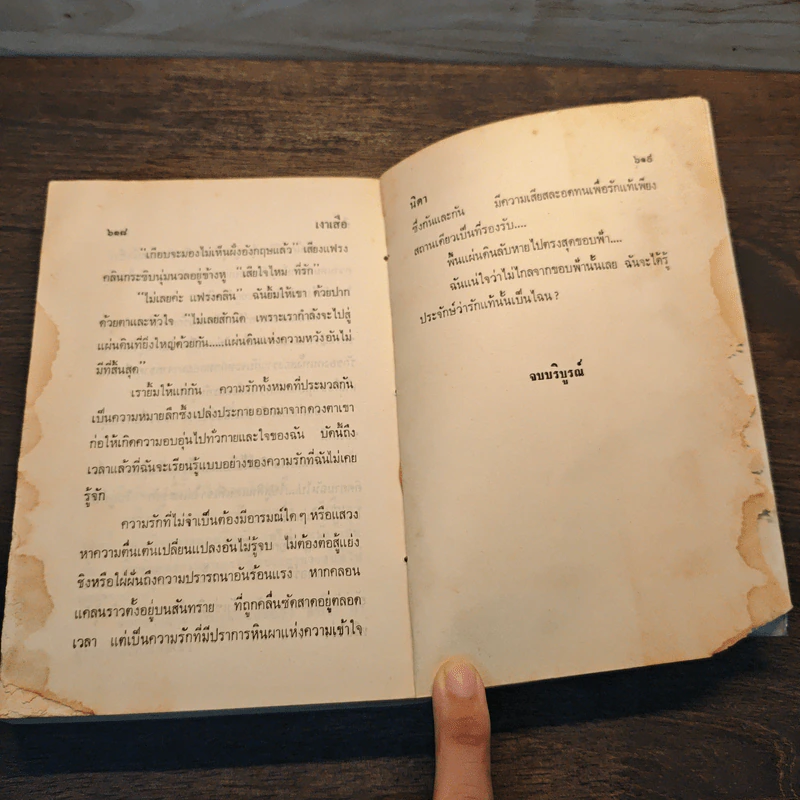 ๖๑๘ เงาเสือ
"เกือบจะมองไม่เห็นฝั่งอังกฤษแล้ว" เสียงแฟรง
คลินกระซิบนุ่มนวลอยู่ข้างหู "เสียใจไหม ที่รัก"
"ไม่เลยค่ะ แฟรงคลิน" ฉันยิ้มให้เขา ด้วยปาก
ด้วยตาและหัวใจ "ไม่เลยสักนิด เพราะเรากำลังจะไปสู่
แผ่นดินที่ยิ่งใหญ่ด้วยกัน.....แผ่นดินแห่งความหวังอันไม่
มีที่สิ้นสุด"
เรายิ้มให้แก่กัน ความรักทั้งหมดที่ประมวลกัน
เป็นความหมายลึกซึ้งเปล่งประกายออกมาจากดวงตาเขา
ก่อให้เกิดความอบอุ่นไปทั่วกายและใจของฉัน บัดนี้ถึง
เวลาแล้วที่ฉันจะเรียนรู้แบบอย่างของความรักที่ฉันไม่เคย
รู้จัก
ความรักที่ไม่จำเป็นต้องมีอารมณ์ใดๆ หรือแสวง
หาความตื่นเต้นเปลี่ยนแปลงอันไม่รู้จบ ไม่ต้องต่อสู้แย่ง
ชิงหรือใฝ่ฝันถึงความปรารถนาอันร้อนแรง หากคลอน
แคลนราวตั้งอยู่บนสันทราย ที่ถูกคลื่นซัดสาดอยู่ตลอด
เวลา แต่เป็นความรักที่มีปราการหินผาแห่งความเข้าใจ
นิดา ๖๑๙
ซึ่งกันและกัน มีความเสียสละอดทนเพื่อรักแท้เพียง
สถานเดียวเป็นที่รองรับ....
พื้นแผ่นดินลับหายไปตรงสุดขอบฟ้า....
ฉันแน่ใจว่าไม่ไกลจากขอบฟ้านั้นเลย ฉันจะได้รู้
ประจักษ์ว่ารักแท้นั้นเป็นไฉน?
จบบริบูรณ์